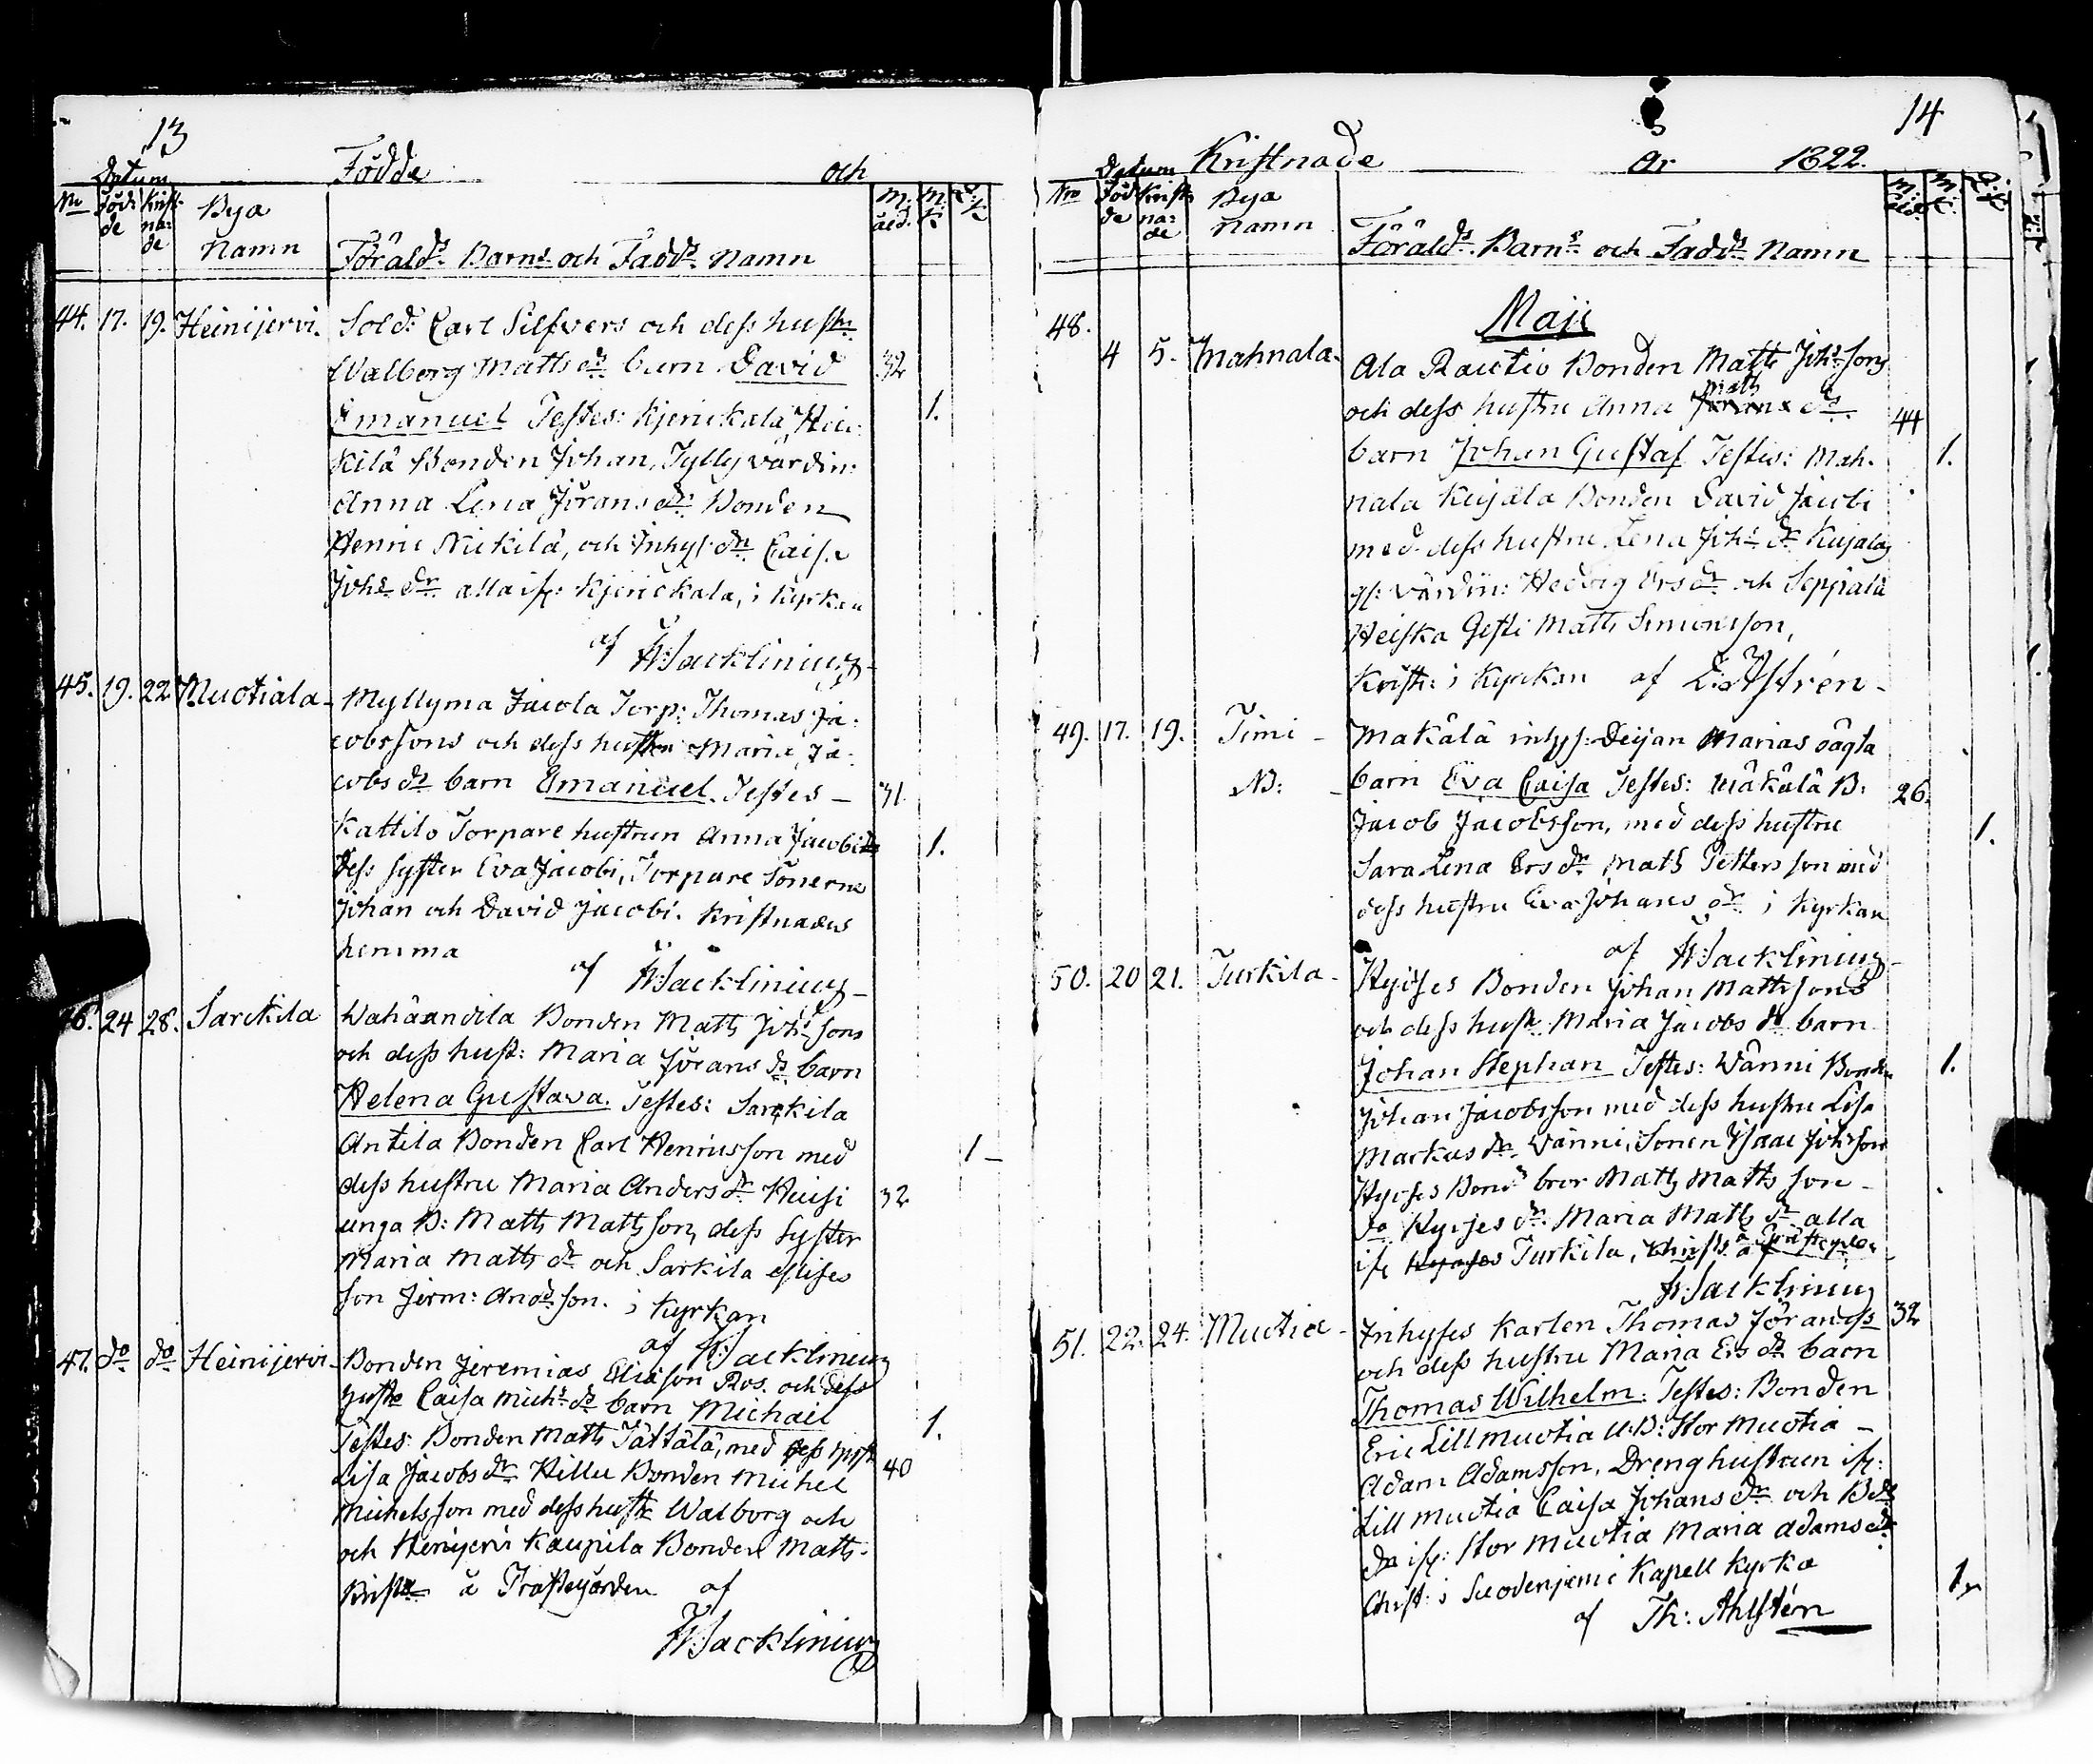 13
Datum Födde och
No Föd: de Krist: na: de Bya Namn Föräld:s Barns och Fadd:s Namn M. åld. M. K. Q. K.
44. 17. 19. Heinijervi. Sold: Carl Silfvers och dess hustr
Walborg Matts dr barn David 32
Emanuel Testes: Kjerickala, 1.
kilä Bonden Johan, Tylly värdin:
Anna Lena Jörans dr Bonden
Henric Nickilä, och Inhys: dn Caisa
Johs dr alla if: Kjerickala, i kyrkan
af Wacklinius
45. 19. 22 Muotiala Myllyma Jacola Torp: Thomas Ja:
cobssons och dess hustru Maria Ja:
cobs dr barn Emanuel. Testes 31
Kattilo Torpare hustrun Anna Jacobi 1.
dess syster Eva Jacobi, Torpare Sönerne
Johan och David Jacobi. Kristnades
hemma
af Wacklinius
46. 24 28. Sarckila Wahäandila Bonden Matts Johs sons
och dess hust: Maria Jörans dr barn
Helena Gustava. Testes: Sarkila
Antila Bonden Carl Henricsson med 1
dess hustru Maria Anders dr Heisi 32
unga B: Matts Mattsson, dess Syster
Maria Matts dr och Sarkila
son Jerm: And:son. i Kyrkan
af Wacklinius
47. do do Heinijervi Bonden Jeremias Eliæson Ros. och dess
hustr Caisa Michs dr barn Michaël
Testes: Bonden Matts Tättälä, med dess hust 1.
Lisa Jacobs dr Hillu Bonden Michel 40
Michelsson med dess hustr Walborg och
och Heinjervi Kaupila Bonden Matts.
Krist å Prästegården af
Wacklinius
14
Datum Kristnade År 1822.
Nro Föd de Krist na: de Bya Namn Föräld:s Barn:s och Fadd:s Namn M. åld. M. K. Q. K.
48. Maji
4 5. Mahnala Ala Rautio Bonden Matts Johs:sons
Matts
och dess hustru Anna dr 44
barn Johan Gustaf Testes: Mah. 1.
nala Kujala Bonden David Jacobi
med dess hustru Lena Johs dr Kujala
gl: värdin: Hedvig Ers dr och Seppälä
Heiska Gesti Matts Simonsson,
Krist: i Kyrkan af E: Aström
49. 17. 19. Timi Makälä inhys: Deijan Marias oägta
NB: barn Eva Caisa Testes: Mäkälä B: 26.
Jacob Jacobsson, med dess hustru 1.
Sara Lena Ers dr Matts Pettersson med
dess hustru Eva Johans dr i Kyrkan
af Wacklinius
50. 20 21. Turkila Hyrjes Bonden Johan Mattssons
och dess hustr Maria Jacobs dr barn
Johan Stephan Testes: Wänni Bonden 1.
Johan Jacobsson med dess hustru Lisa
Markus dr. Wänni, Sonen Isaac Johsson
Hyrjes Bond bror Matts Mattsson
do Hyrjes dr. Maria Matts dr alla
if Turkila, Christ: å Prästegården af
Wacklinius
51. 22. 24. Muotia Inhyses Karlen Thomas Jöranss 32
och dess hustru Maria Ers dr barn
Thomas Wilhelm: Testes: Bonden
Eric Lill Muotia U:B: Stor Muotia
Adam Adamsson, Dreng hustrun if:
Lill Muotia Caisa Johans dr och Bds
dr if: Stor Muotia Maria Adams dr
Christ: i Suodenjemi Kapell Kyrka 1.
af Th: Ahlstén